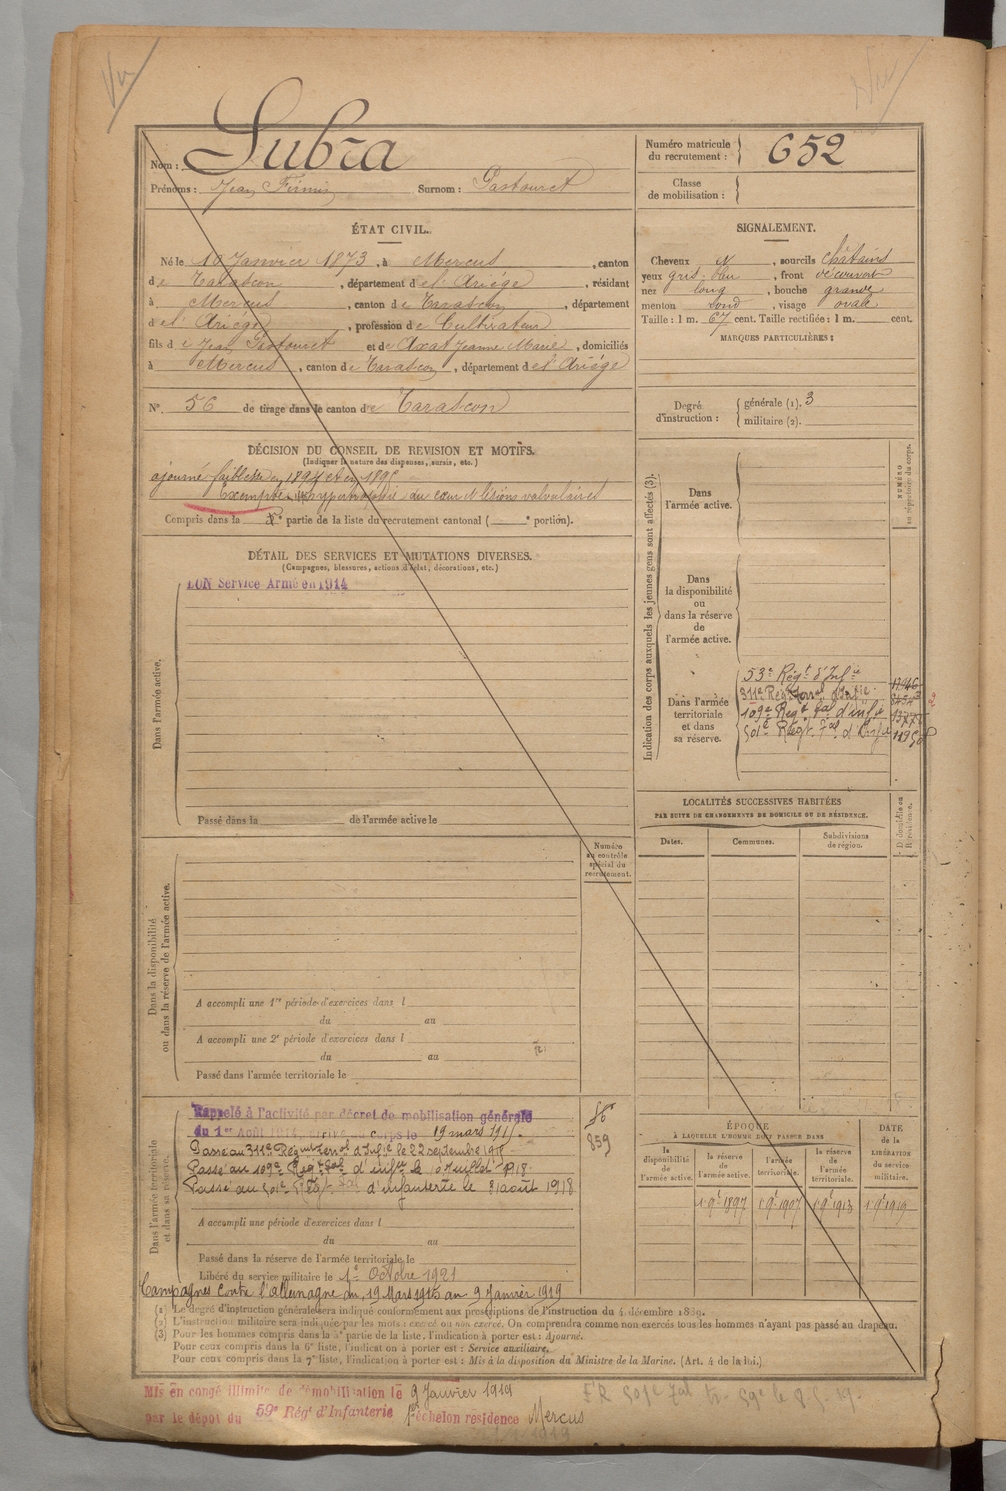 Vu
Vu
Nom : Subra
Prénoms : Jean Firmin Surnom : Pastouret
Numéro matricule du recrutement : 652
Classe de mobilisation :
ÉTAT CIVIL.
Né le 10 Janvier 1873, à Mercus, canton
de Tarascon, département de l'Ariège, résidant
à Mercus, canton de Tarascon, département
de l'Ariège, profession de Cultivateur
fils de Jean Pastouret et de Axat Jeanne Marie, domiciliés
à Mercus, canton de Tarascon, département de l'Ariège
N° 56 de tirage dans le canton de Tarascon
SIGNALEMENT.
Cheveux N, sourcils châtains
yeux gris-bleu, front découvert
nez long, bouche grande
menton rond, visage ovale
Taille : 1 m. 67 cent. Taille rectifiée : 1 m. cent.
MARQUES PARTICULIÈRES :
Degré d'instruction : générale (1). 3
militaire (2).
DÉCISION DU CONSEIL DE REVISION ET MOTIFS.
(Indiquer la nature des dispenses, sursis, etc.)
ajourné faiblesse en 1894 et en 1895
Exempté hypertrophie du cœur et lésions valvulaires
Compris dans la e partie de la liste du recrutement cantonal ( e portion).
DÉTAIL DES SERVICES ET MUTATIONS DIVERSES.
(Campagnes, blessures, actions d'éclat, décorations, etc.)
BON Service Armé en 1914
Dans l'armée active.
Passé dans la de l'armée active le
Indication des corps auxquels les jeunes gens sont affectés (3).
NUMÉRO au répertoire du corps.
Dans l'armée active.
Dans la disponibilité ou dans la réserve de l'armée active.
Dans l'armée territoriale et dans sa réserve.
53e Régt d'Infie
311e Régt terral d'Infie
109e Regt tal d'infie
501e Régt Tal d'Infie
LOCALITÉS SUCCESSIVES HABITÉES
PAR SUITE DE CHANGEMENTS DE DOMICILE OU DE RÉSIDENCE.
Dates.
Communes.
Subdivisions de région.
D domicile ou R résidence.
Numéro au contrôle spécial du recrutement.
Dans la disponibilité ou dans la réserve de l'armée active.
A accompli une 1re période d'exercices dans l
du au
A accompli une 2e période d'exercices dans l
du au
Passé dans l'armée territoriale le
Dans l'armée territoriale et dans sa réserve.
859
Rappelé à l'activité par décret de mobilisation générale
du 1er Août 1914, arrivé au corps le 19 mars 1915.
Passé au 311e Régiment terral d'Infie le 22 septembre
Passé au 109e Regt tal d'infie le 10 Juillet 1918
Passé au 501e Régt Tal d'infanterie le 31 août 1918
A accompli une période d'exercices dans l
du au
Passé dans la réserve de l'armée territoriale le
Libéré du service militaire le 1er Octobre 1921
Campagnes contre l'allemagne du 19 Mars 1915 au 9 Janvier 1919
ÉPOQUE
À LAQUELLE L'HOMME DOIT PASSER DANS
la disponibilité de l'armée active.
la réserve de l'armée active.
l'armée territoriale.
la réserve de l'armée territoriale.
DATE de la LIBÉRATION du service militaire.
1 9e 1897
1 9e 1907
1 9e 1913
1 9e 1919
(1) Le degré d'instruction générale sera indiqué conformément aux prescriptions de l'instruction du 4 décembre 1889.
(2) L'instruction militaire sera indiquée par les mots : exercé ou non exercé. On comprendra comme non exercés tous les hommes n'ayant pas passé au drapeau.
(3) Pour les hommes compris dans la 5e partie de la liste, l'indication à porter est : Ajourné.
Pour ceux compris dans la 6e liste, l'indication à porter est : Service auxiliaire.
Pour ceux compris dans la 7e liste, l'indication à porter est : Mis à la disposition du Ministre de la Marine. (Art. 4 de la loi.)
Mis en congé illimité de démobilisation le 9 Janvier 1919
par le dépôt du 59e Régt d'Infanterie échelon résidence Mercus